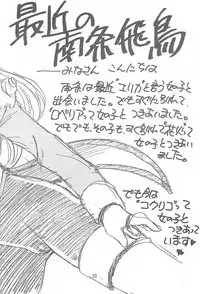 最近の
南条飛鳥
――みなさん こんにちは
南条は最近"エリカ"と言う女の子と
出会いました。でもすぐに別れて、
"ロベリア"って女の子とつきあいました。
でもでも、その子もすぐ別れて花火って
女の子とつきあい
ました。
でも今は
"コクリコ"って
女の子と
つきあって
います♥